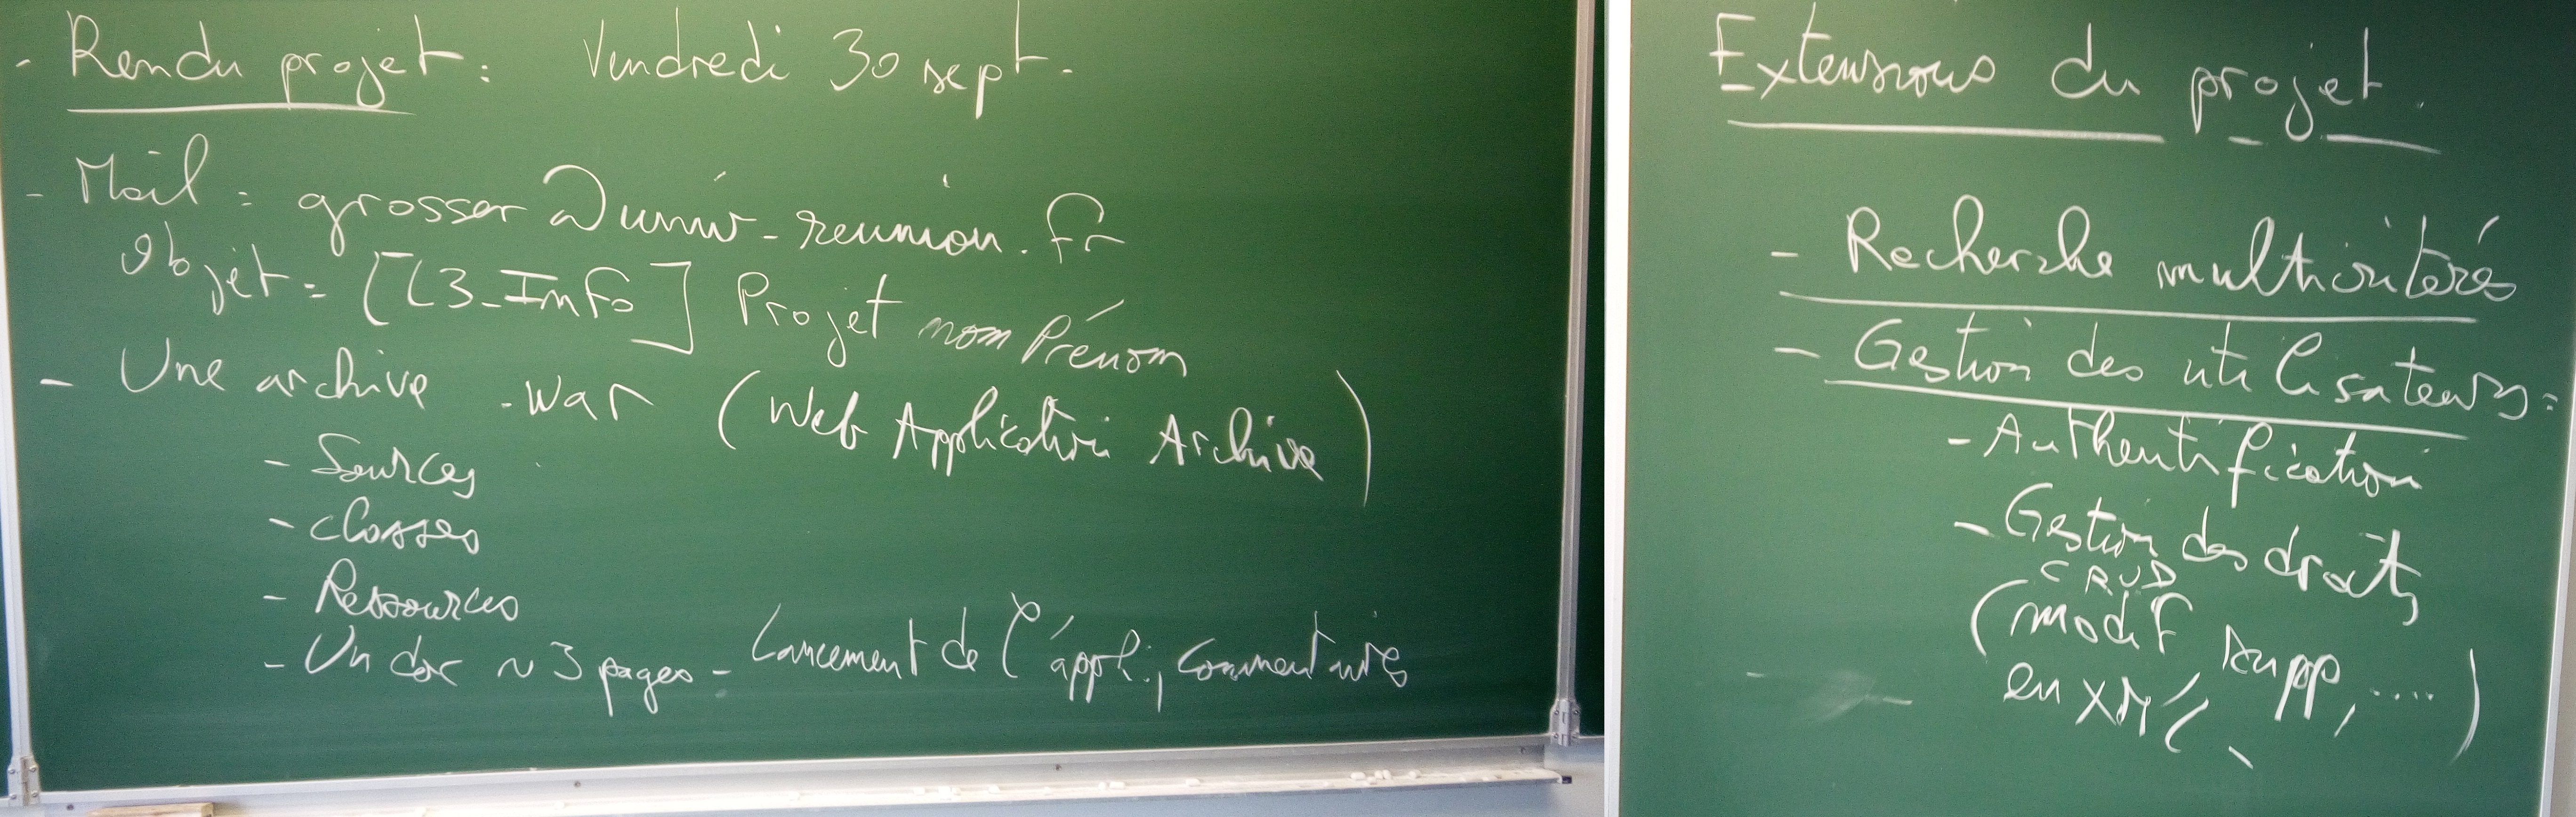 - Rendu projet : Vendredi 30 sept.
- Mail : grosser@univ-reunion.fr
Objet = [L3-Info] Projet nom Prénom
- Une archive .war (Web Application Archive)
- Sources
- classes
- Ressources
- Un doc ~ 3 pages - Lancement de l'appli, commentaires
Extensions du projet.
- Recherche multicritères
- Gestion des utilisateurs :
- Authentification
- Gestion des droits
CRUD
(modif supp, ....)
en XML